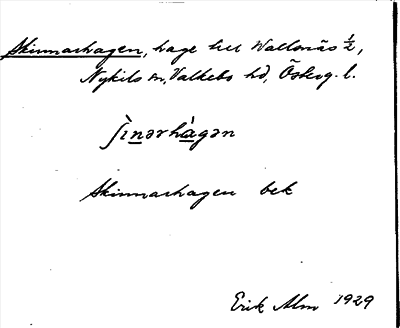 Skinnarhagen, hage till Wallsnäs ½,
Nykils sn, Valkebo hd, Österg. l.
ʃìnərhàgən
Skinnarhagen bek
Erik Alm 1929